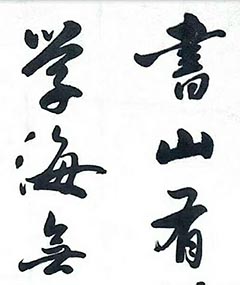 書山有
学海無